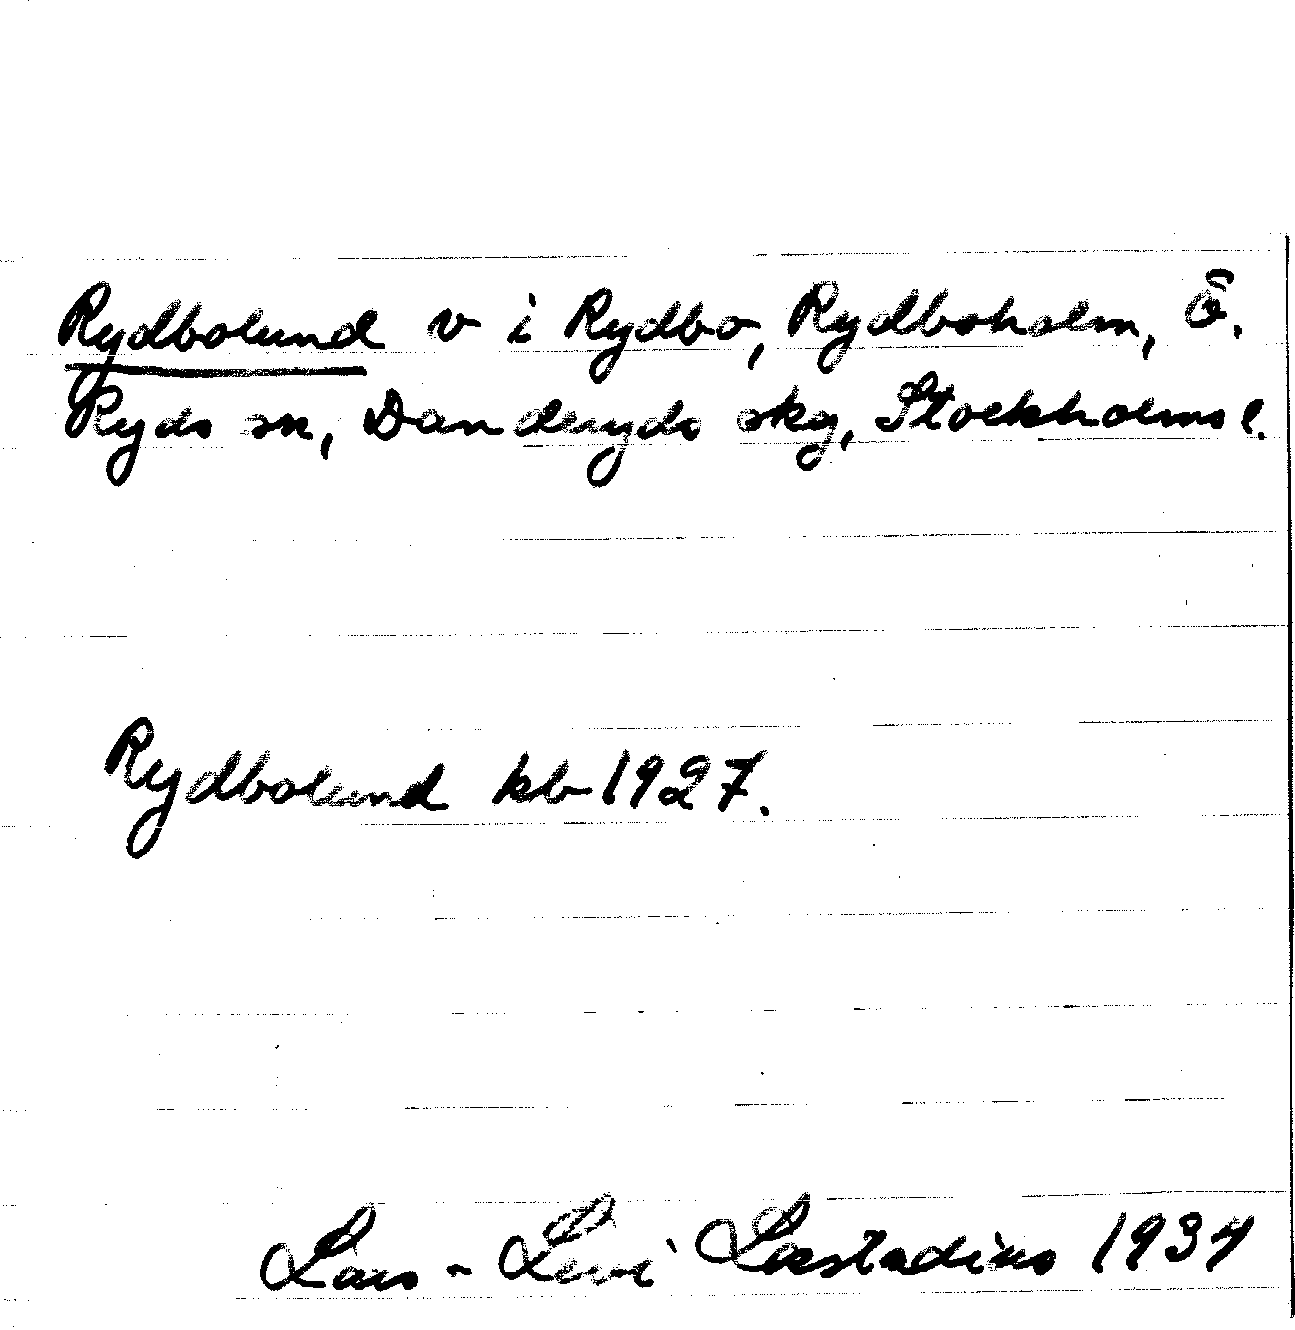 Rydbolund v i Rydbo, Rydboholm, Ö.
Ryds sn, Danderyds skg, Stockholms l.
Rydbolund kb 1927.
Lars-Levi Læstadius 1934